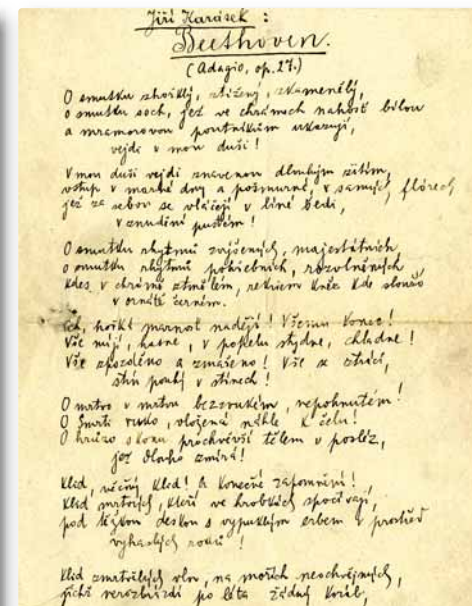 Jiří Karásek :
Beethoven.
(Adagio, op. 27.)
O smutku zhořklý, ztížený, zkamenělý,
o smutku soch, jež ve chrámech nahost bílou
a mramorovou poutníkům ukazují,
vejdi v mou duši!
V mou duši vejdi znavenou dlouhým žitím,
vstup v marné dny a pošmurné, v samých flórech
jež za sebou se vláčejí v líné šedi,
v znudění pustém!
O smutku rhytmů zvýšených, majestátních
o smutku rhytmů pohřebních, rozvolněných
kdes v chrámě ztmělém, rekviem kněz kde slouží
v ornátě černém.
Ach, hořká marnost nadějí! Všemu konec!
Vše míjí, hasne, v popelu stydne, chladne!
Vše zpozděno a zmařeno! Vše se ztrácí,
stín pouhý v stínech!
O mrtvo v mrtvu bezzvukém, nepohnutém!
O Smrti ruko, vložená náhle k čelu!
O hrůzo skonu prochvěvší tělem v posléz,
jež dlouho zmírá!
Klid, věčný klid! A konečné zapomnění!
Klid mrtvých, kteří ve hrobkách spočívají,
pod těžkou deskou s vypuklým erbem v prostřed
vyhaslých rodů!
Klid zmrtvělých vln, na mořích neschvějných,
jichž nerozbrázdí po léta žádný koráb,